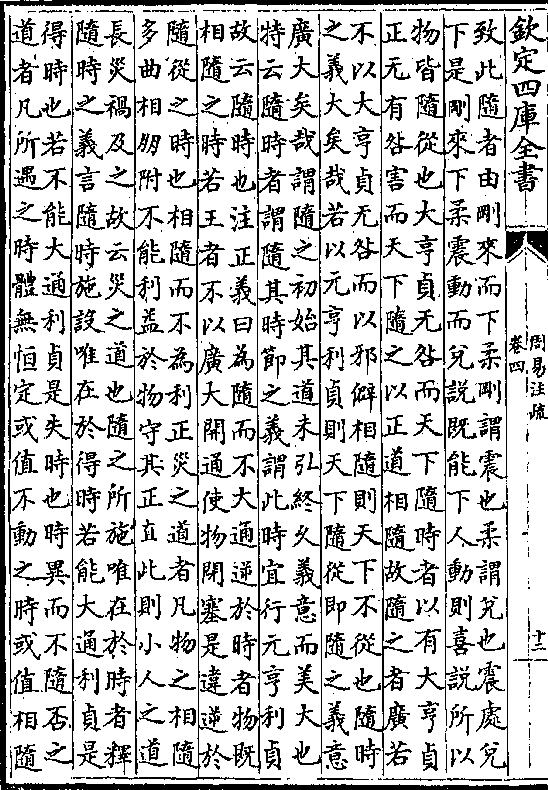 欽定四庫全書
周易注疏
卷四
十二
致此隨者由剛來而下柔剛謂震也柔謂兌也震處兌
下是剛來下柔震動而兌說既能下人動則喜說所以
物皆隨從也大亨貞无咎而天下隨時者以有大亨貞
正无有咎害而天下隨之以正道相隨故隨之者廣若
不以大亨貞无咎而以邪僻相隨則天下不從也隨時
之義大矣哉若以元亨利貞則天下隨從即隨之義意
廣大矣哉謂隨之初始其道未弘終久義意而美大也
特云隨時者謂隨其時節之義謂此時宜行元亨利貞
故云隨時也注正義曰為隨而不大通逆於時者物既
相隨之時若王者不以廣大開通使物閉塞是違逆於
隨從之時也相隨而不為利正災之道者凡物之相隨
多曲相朋附不能利益於物守其正直此則小人之道
長災禍及之故云災之道也隨之所施唯在於時者釋
隨時之義言隨時施設唯在於得時若能大通利貞是
得時也若不能大通利貞是失時也時異而不隨否之
道者凡所遇之時體無恒定或值不動之時或值相隨